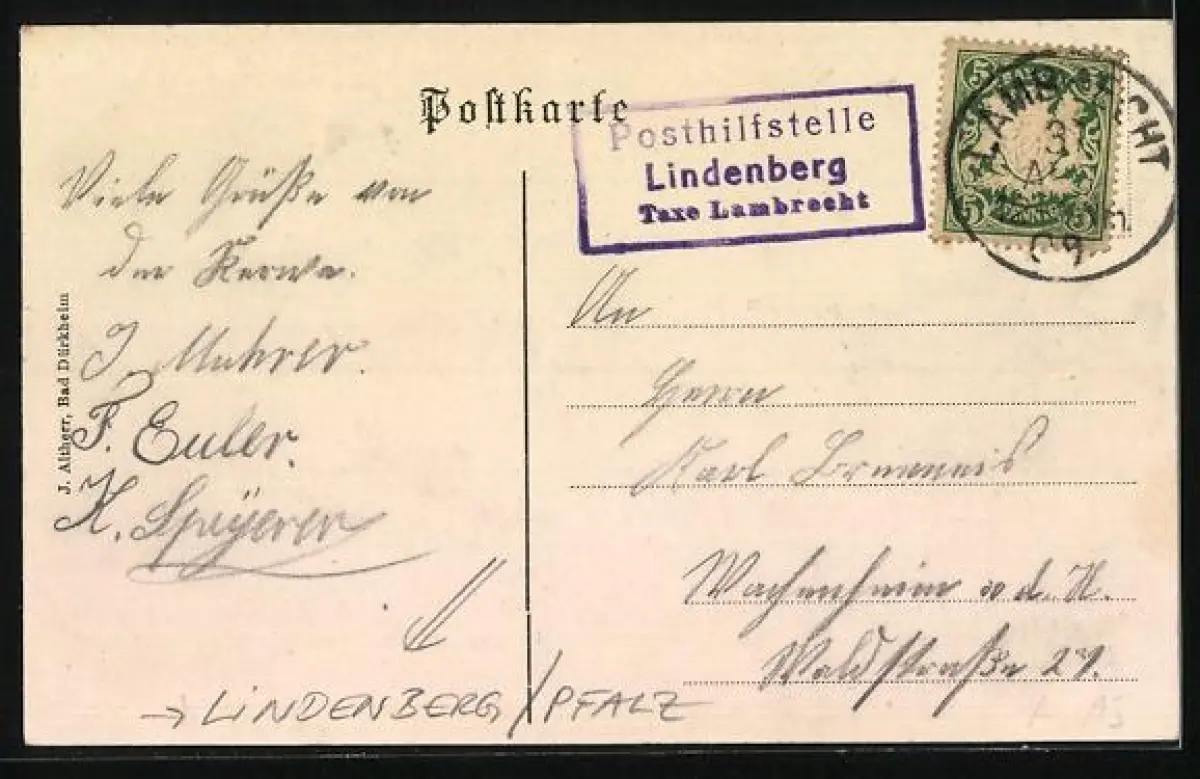 Postkarte
Posthilfstelle
Lindenberg
Taxe Lambrecht
LAMBRECHT
31
09
5 5
5 5
Viele Grüße von
der Kerwe.
J. Muhrer.
F. Euler.
K. Speÿerer
J. Altherr, Bad Dürkheim
An
Herrn
Karl
Wachenheim a d. H.
Waldstraße 29.
→ LINDENBERG/PFALZ